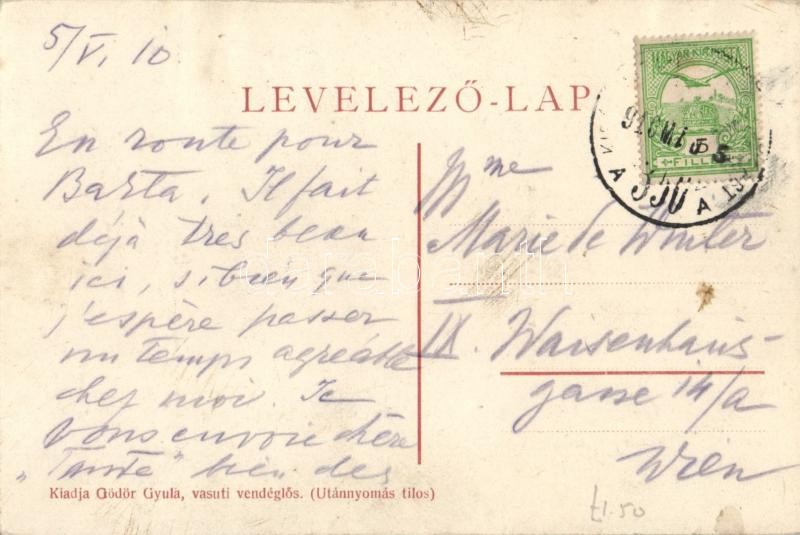 5/V. 10
LEVELEZŐ-LAP
En route pour
Barta. Il fait
déjà tres beau
ici, si bien que
j'espère passer
un temps agréable
chez moi. Je
vous envoie chère
"Tante" bien des
Mme
Marie de Winter
IX. Waisenhaus-
gasse 14/a
Wien
MAGYAR KIR. POSTA
5
FILL
910 MÁJ 5
A 330 A
Kiadja Gödör Gyula, vasuti vendéglős. (Utánnyomás tilos)
darabanth